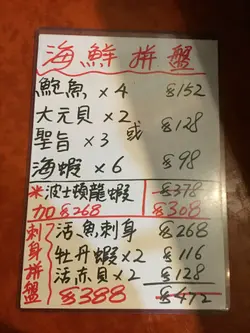 海鮮拼盤
鮑魚×4 $152
大元貝×2 或 $128
聖旨×3
海蝦×6 $98
米波士頓龍蝦 $378
加$268 $308
刺身拼盤
活魚刺身 $268
牡丹蝦×2 $116
活赤貝×2 $128
$388 $472